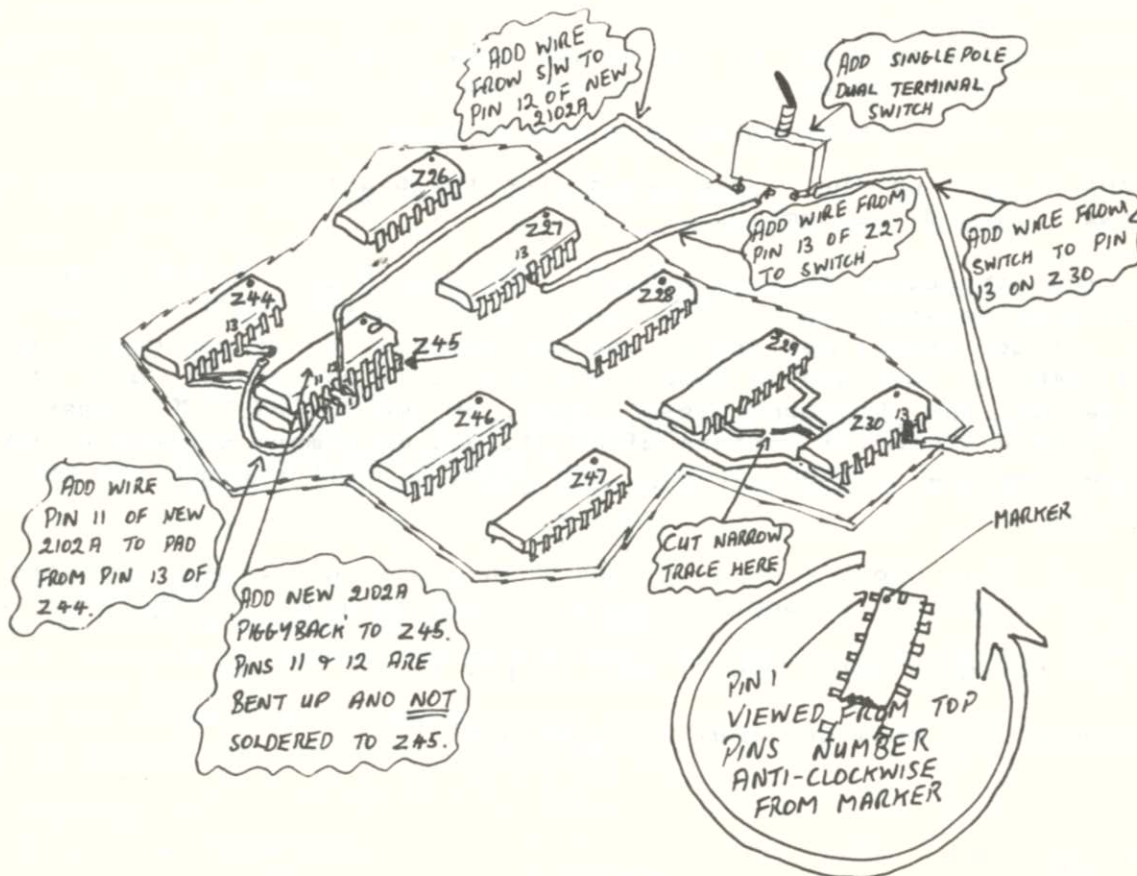 ADD WIRE
FROM S/W TO
PIN 12 OF NEW
2102A
ADD SINGLE POLE
DUAL TERMINAL
SWITCH
ADD WIRE FROM
PIN 13 OF Z27
TO SWITCH
ADD WIRE FROM
SWITCH TO PIN
13 ON Z30
Z26
Z27
13
Z28
Z29
Z30
13
Z44
13
Z45
11
Z46
Z47
ADD WIRE
PIN 11 OF NEW
2102A TO PAD
FROM PIN 13 OF
Z44.
ADD NEW 2102A
'PIGGYBACK' TO Z45.
PINS 11 & 12 ARE
BENT UP AND NOT
SOLDERED TO Z45.
CUT NARROW
TRACE HERE
MARKER
PIN 1
VIEWED FROM TOP
PINS NUMBER
ANTI-CLOCKWISE
FROM MARKER